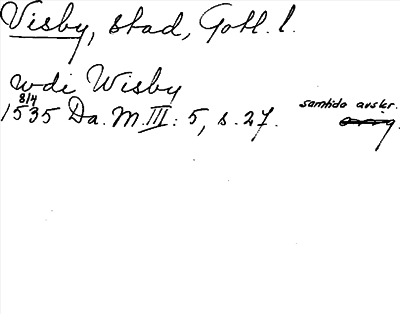 Visby, stad, Gotl. l.
wdi Wisby
1535 8/4 Da. M. III: 5, s. 27. samtida avskr.
orig.